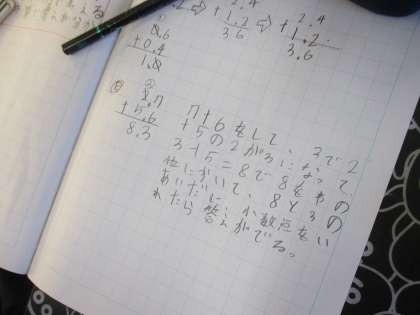 ⇨ 2.4 ⇨ 2.4
+1.2 +1.2.
3 6 3.6
①
0.6
+0.4
1.0
②
2.7
+5.6
8.3
7+6をして、3で2
+5の2が3になって
3+5=8で8を
にかいて、8と3の
あいだに小数点をい
れたら答えがでる。